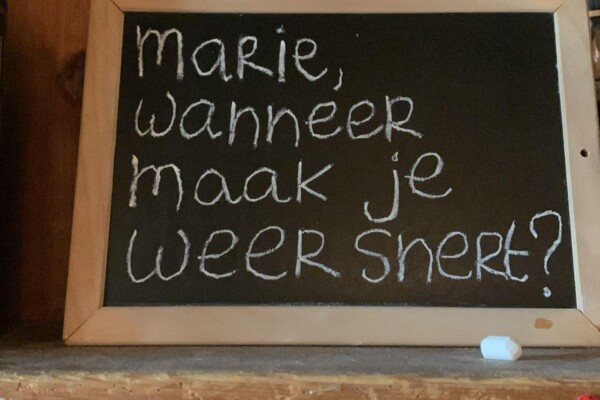 Marie,
wanneer
maak je
weer snert?